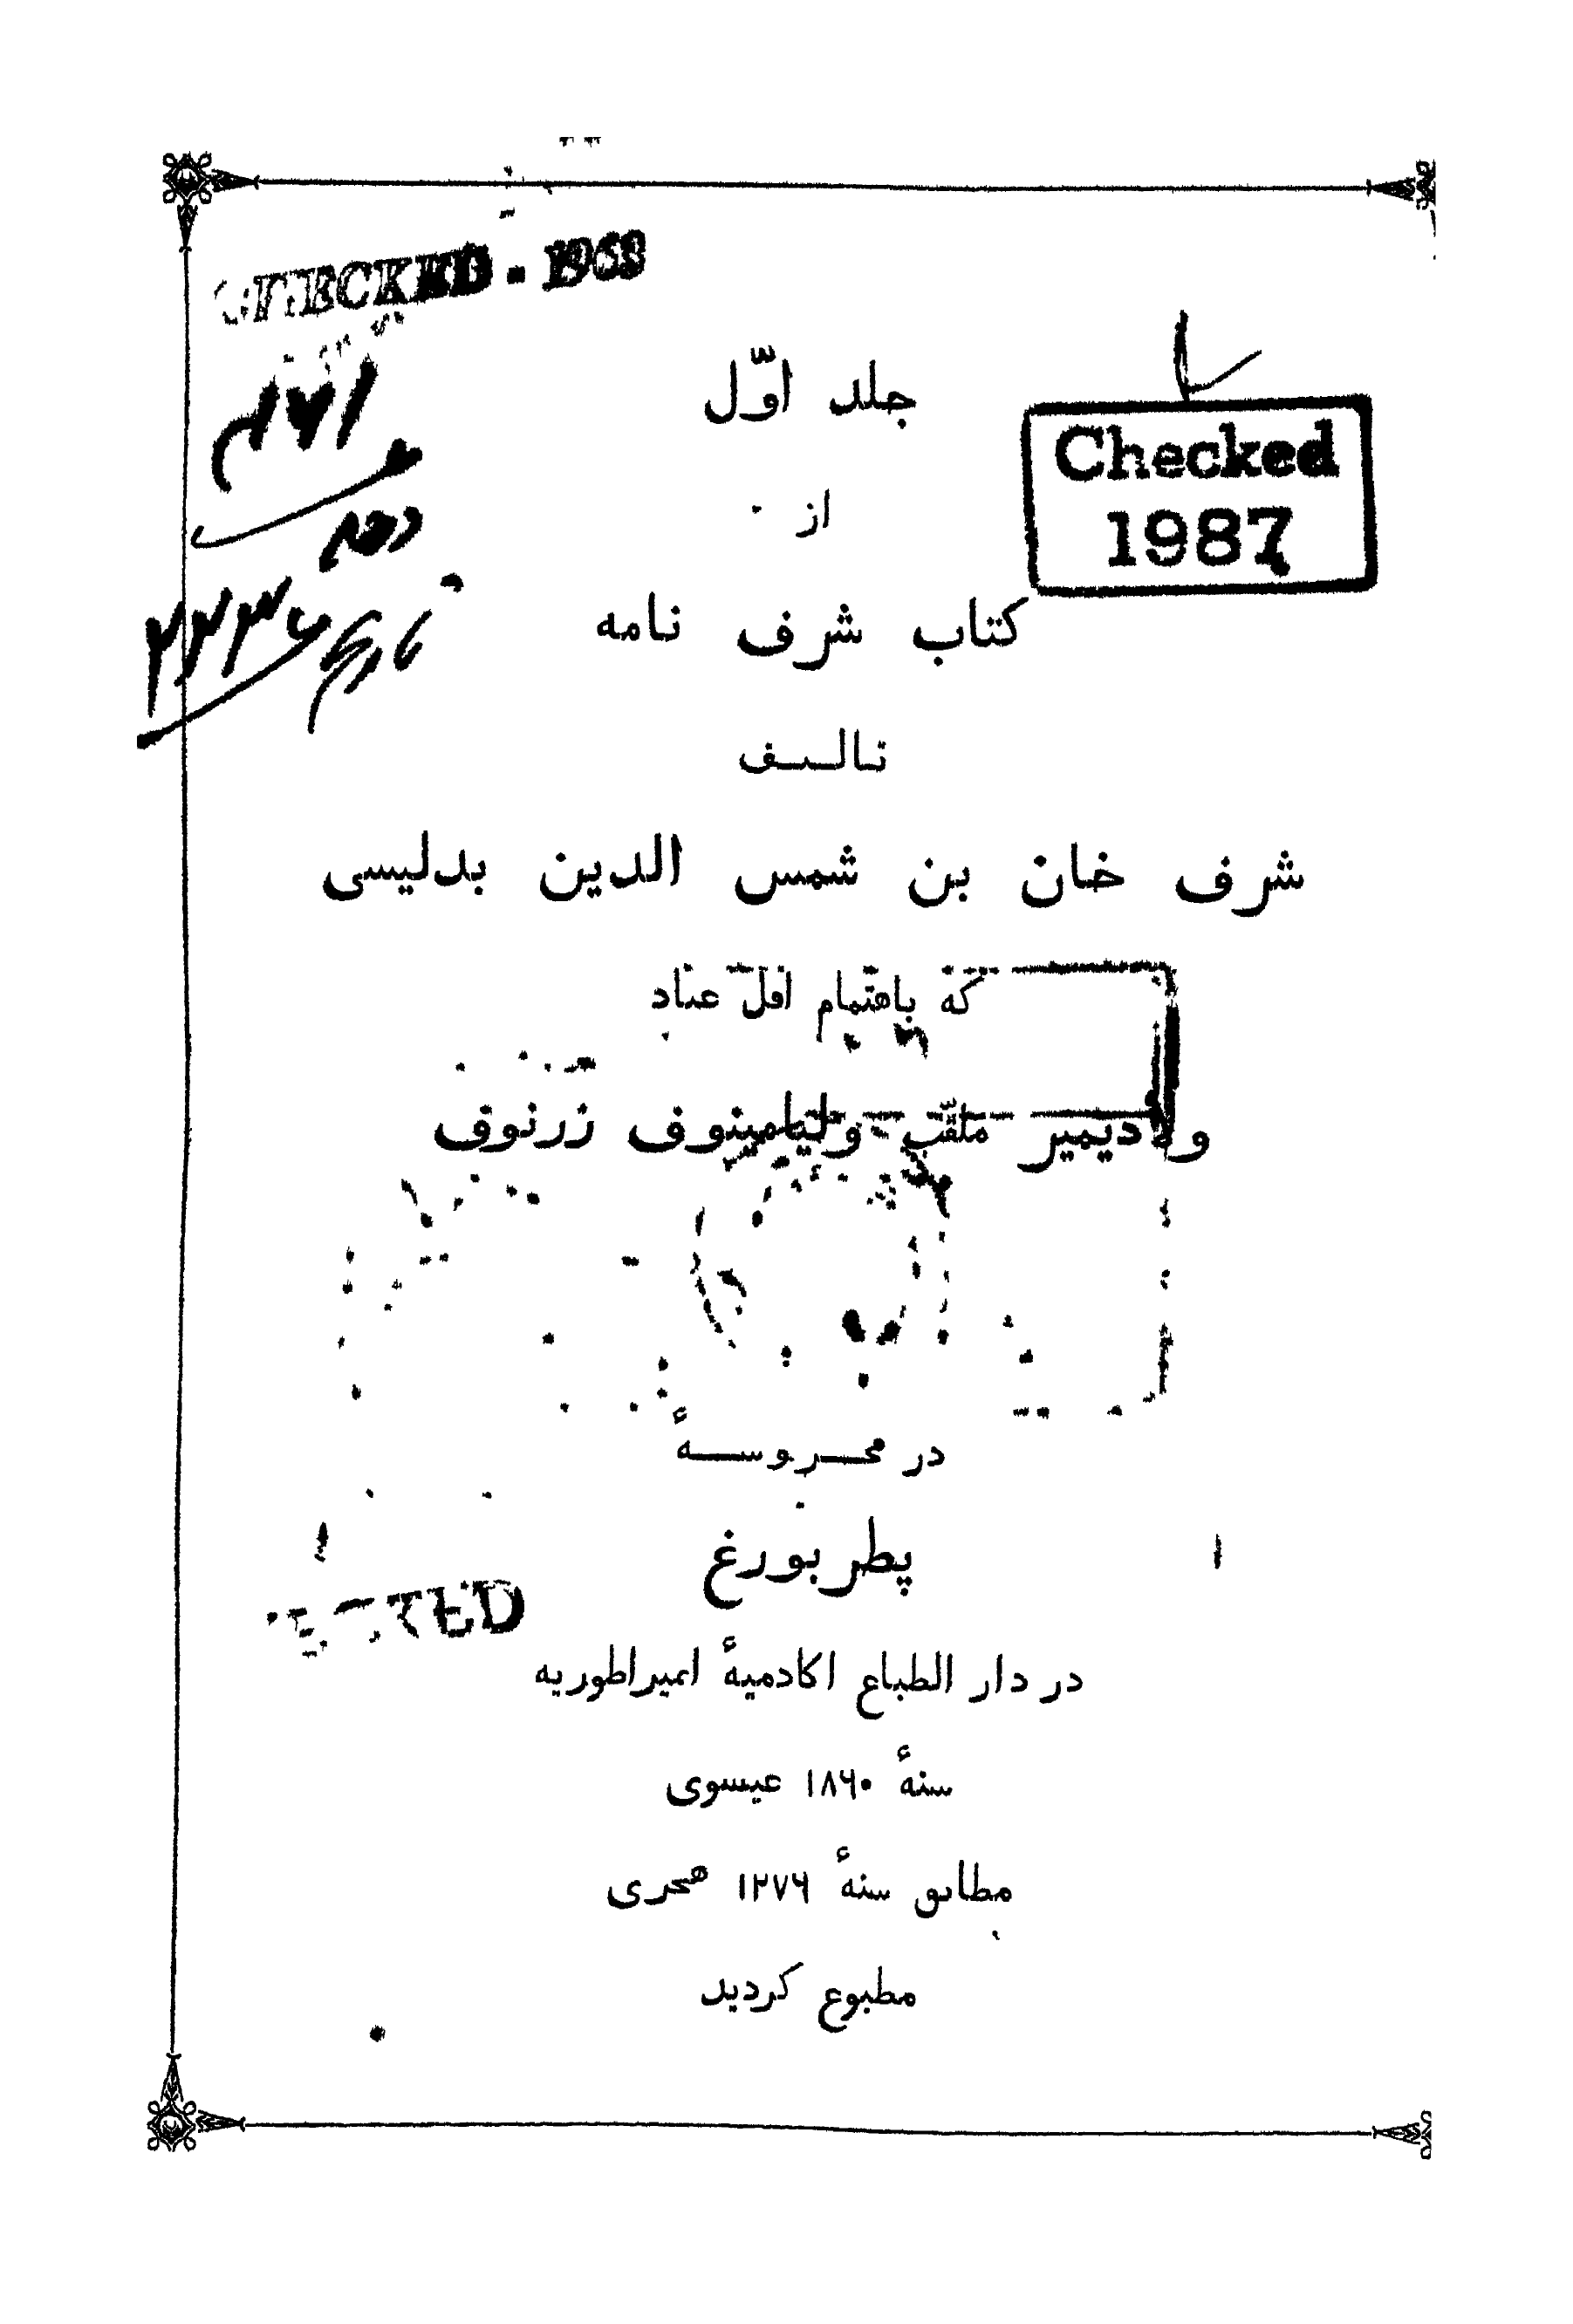 CHECKED - 1968
جلد اوّل
Checked
1987
از
كتاب شرف نامه
تالیف
شرف خان بن شمس الدین بدلیسی
که باهتمام اقلّ عباد
ولادیمیر ملقّب ولیامینوف زرنوف
در محروسهٔ
پطربورغ
در دار الطباع اکادمیهٔ امپراطوریه
سنهٔ ۱۸۶۰ عیسوی
مطابق سنهٔ ۱۲۷۶ هجری
مطبوع کردید